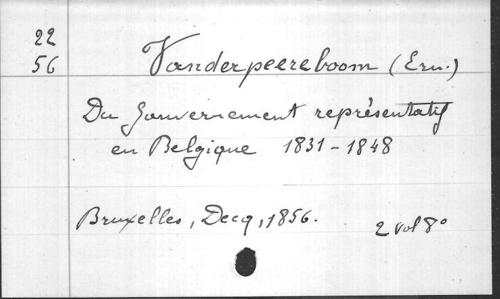 22
56
Vanderpeereboom (Ern.)
Du Gouvernement représentatif
en Belgique 1831-1848
Bruxelles, Decq, 1856.
2 vol 8°